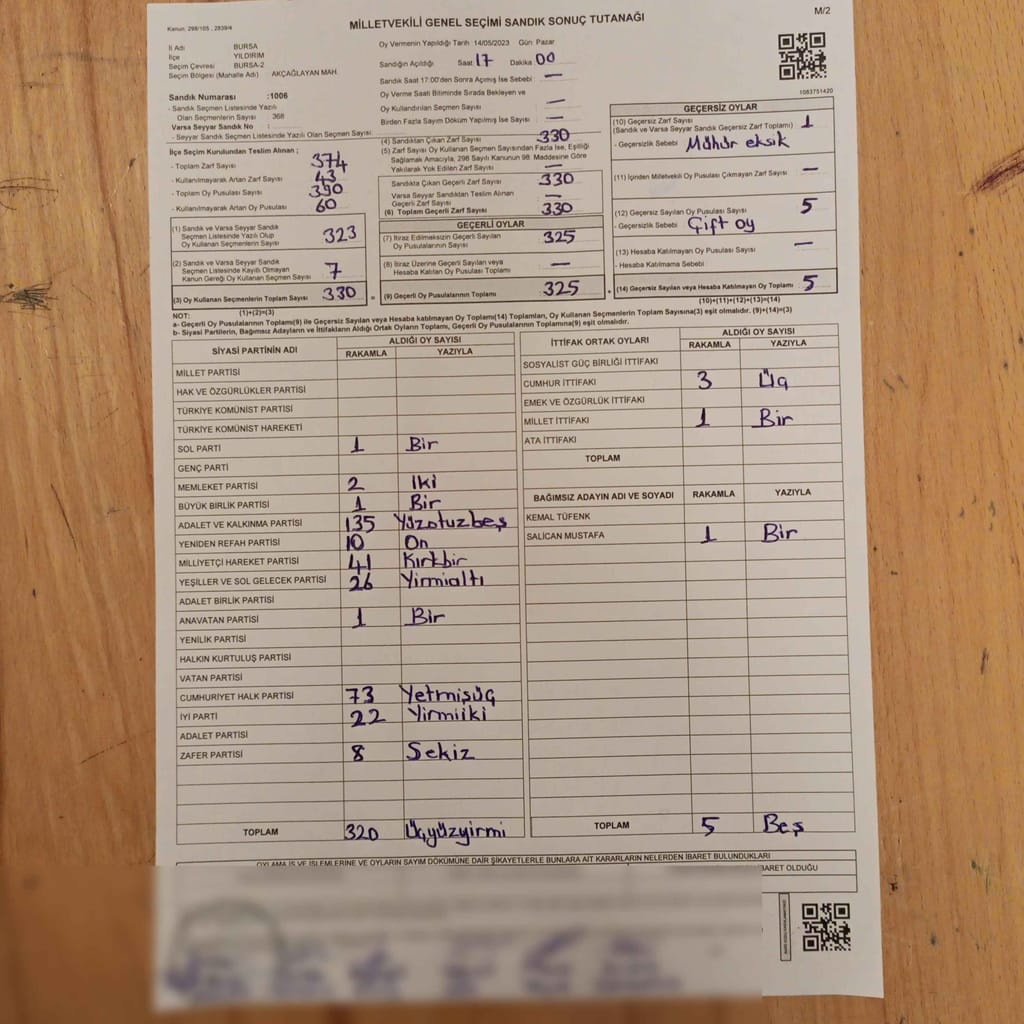 Kanun: 298/105 , 2839/4
MİLLETVEKİLİ GENEL SEÇİMİ SANDIK SONUÇ TUTANAĞI
M/2
İl Adı BURSA
İlçe YILDIRIM
Seçim Çevresi BURSA-2
Seçim Bölgesi (Mahalle Adı) AKÇAĞLAYAN MAH.
Sandık Numarası :1006
- Sandık Seçmen Listesinde Yazılı
Olan Seçmenlerin Sayısı 368
Varsa Seyyar Sandık No :
- Seyyar Sandık Seçmen Listesinde Yazılı Olan Seçmen Sayısı:
Oy Vermenin Yapıldığı Tarih 14/05/2023 Gün Pazar
Sandığın Açıldığı Saat 17 Dakika 00
Sandık Saat 17:00'den Sonra Açımış İse Sebebi —
Oy Verme Saati Bitiminde Sırada Bekleyen ve
Oy Kullandırılan Seçmen Sayısı —
Birden Fazla Sayım Döküm Yapılmış İse Sayısı —
1083751420
İlçe Seçim Kurulundan Teslim Alınan ;
- Toplam Zarf Sayısı 374
- Kullanılmayarak Artan Zarf Sayısı 43
- Toplam Oy Pusulası Sayısı 390
- Kullanılmayarak Artan Oy Pusulası 60
(1) Sandık ve Varsa Seyyar Sandık
Seçmen Listesinde Yazılı Olup
Oy Kullanan Seçmenlerin Sayısı 323
(2) Sandık ve Varsa Seyyar Sandık
Seçmen Listesinde Kayıtlı Olmayan
Kanun Gereği Oy Kullanan Seçmen Sayısı 7
(3) Oy Kullanan Seçmenlerin Toplam Sayısı 330
(1)+(2)=(3)
(4) Sandıktan Çıkan Zarf Sayısı 330
(5) Zarf Sayısı Oy Kullanan Seçmen Sayısından Fazla İse, Eşitliği
Sağlamak Amacıyla, 298 Sayılı Kanunun 98. Maddesine Göre
Yakılarak Yok Edilen Zarf Sayısı —
Sandıkta Çıkan Geçerli Zarf Sayısı 330
Varsa Seyyar Sandıktan Teslim Alınan
Geçerli Zarf Sayısı —
(6) Toplam Geçerli Zarf Sayısı 330
GEÇERLİ OYLAR
(7) İtiraz Edilmeksizin Geçerli Sayılan
Oy Pusulalarının Sayısı 325
(8) İtiraz Üzerine Geçerli Sayılan veya
Hesaba Katılan Oy Pusulası Toplamı —
= (9) Geçerli Oy Pusulalarının Toplamı 325
GEÇERSİZ OYLAR
(10) Geçersiz Zarf Sayısı
(Sandık ve Varsa Seyyar Sandık Geçersiz Zarf Toplamı) 1
- Geçersizlik Sebebi Mühür eksik
(11) İçinden Milletvekili Oy Pusulası Çıkmayan Zarf Sayısı —
(12) Geçersiz Sayılan Oy Pusulası Sayısı 5
- Geçersizlik Sebebi Çift oy
(13) Hesaba Katılmayan Oy Pusulası Sayısı —
- Hesaba Katılmama Sebebi
+ (14) Geçersiz Sayılan veya Hesaba Katılmayan Oy Toplamı 5
(10)+(11)+(12)+(13)=(14)
NOT:
a- Geçerli Oy Pusulaları Toplamı(9) ile Geçersiz Sayılan veya Hesaba katılmayan Oy Toplamı(14) Toplamları, Oy Kullanan Seçmenlerin Toplam Sayısına(3) eşit olmalıdır. (9)+(14)=(3)
b- Siyasi Partilerin, Bağımsız Adayların ve İttifakların Aldığı Ortak Oyların Toplamı, Geçerli Oy Pusulalarının Toplamına(9) eşit olmalıdır.
SİYASİ PARTİNİN ADI ALDIĞI OY SAYISI
RAKAMLA YAZIYLA
MİLLET PARTİSİ
HAK VE ÖZGÜRLÜKLER PARTİSİ
TÜRKİYE KOMÜNİST PARTİSİ
TÜRKİYE KOMÜNİST HAREKETİ
SOL PARTİ 1 Bir
GENÇ PARTİ
MEMLEKET PARTİSİ 2 İki
BÜYÜK BİRLİK PARTİSİ 1 Bir
ADALET VE KALKINMA PARTİSİ 135 Yüzotuzbeş
YENİDEN REFAH PARTİSİ 10 On
MİLLİYETÇİ HAREKET PARTİSİ 41 Kırkbir
YEŞİLLER VE SOL GELECEK PARTİSİ 26 Yirmialtı
ADALET BİRLİK PARTİSİ
ANAVATAN PARTİSİ 1 Bir
YENİLİK PARTİSİ
HALKIN KURTULUŞ PARTİSİ
VATAN PARTİSİ
CUMHURİYET HALK PARTİSİ 73 Yetmişüç
İYİ PARTİ 22 Yirmiiki
ADALET PARTİSİ
ZAFER PARTİSİ 8 Sekiz
TOPLAM 320 Üçyüzyirmi
İTTİFAK ORTAK OYLARI ALDIĞI OY SAYISI
RAKAMLA YAZIYLA
SOSYALİST GÜÇ BİRLİĞİ İTTİFAKI
CUMHUR İTTİFAKI 3 Üç
EMEK VE ÖZGÜRLÜK İTTİFAKI
MİLLET İTTİFAKI 1 Bir
ATA İTTİFAKI
TOPLAM
BAĞIMSIZ ADAYIN ADI VE SOYADI RAKAMLA YAZIYLA
KEMAL TÜFENK
SALİCAN MUSTAFA 1 Bir
TOPLAM 5 Beş
OYLAMA İŞ VE İŞLEMLERİNE VE OYLARIN SAYIM DÖKÜMÜNE DAİR ŞİKAYETLERLE BUNLARA AİT KARARLARIN NELERDEN İBARET BULUNDUKLARI
İBARET OLDUĞU